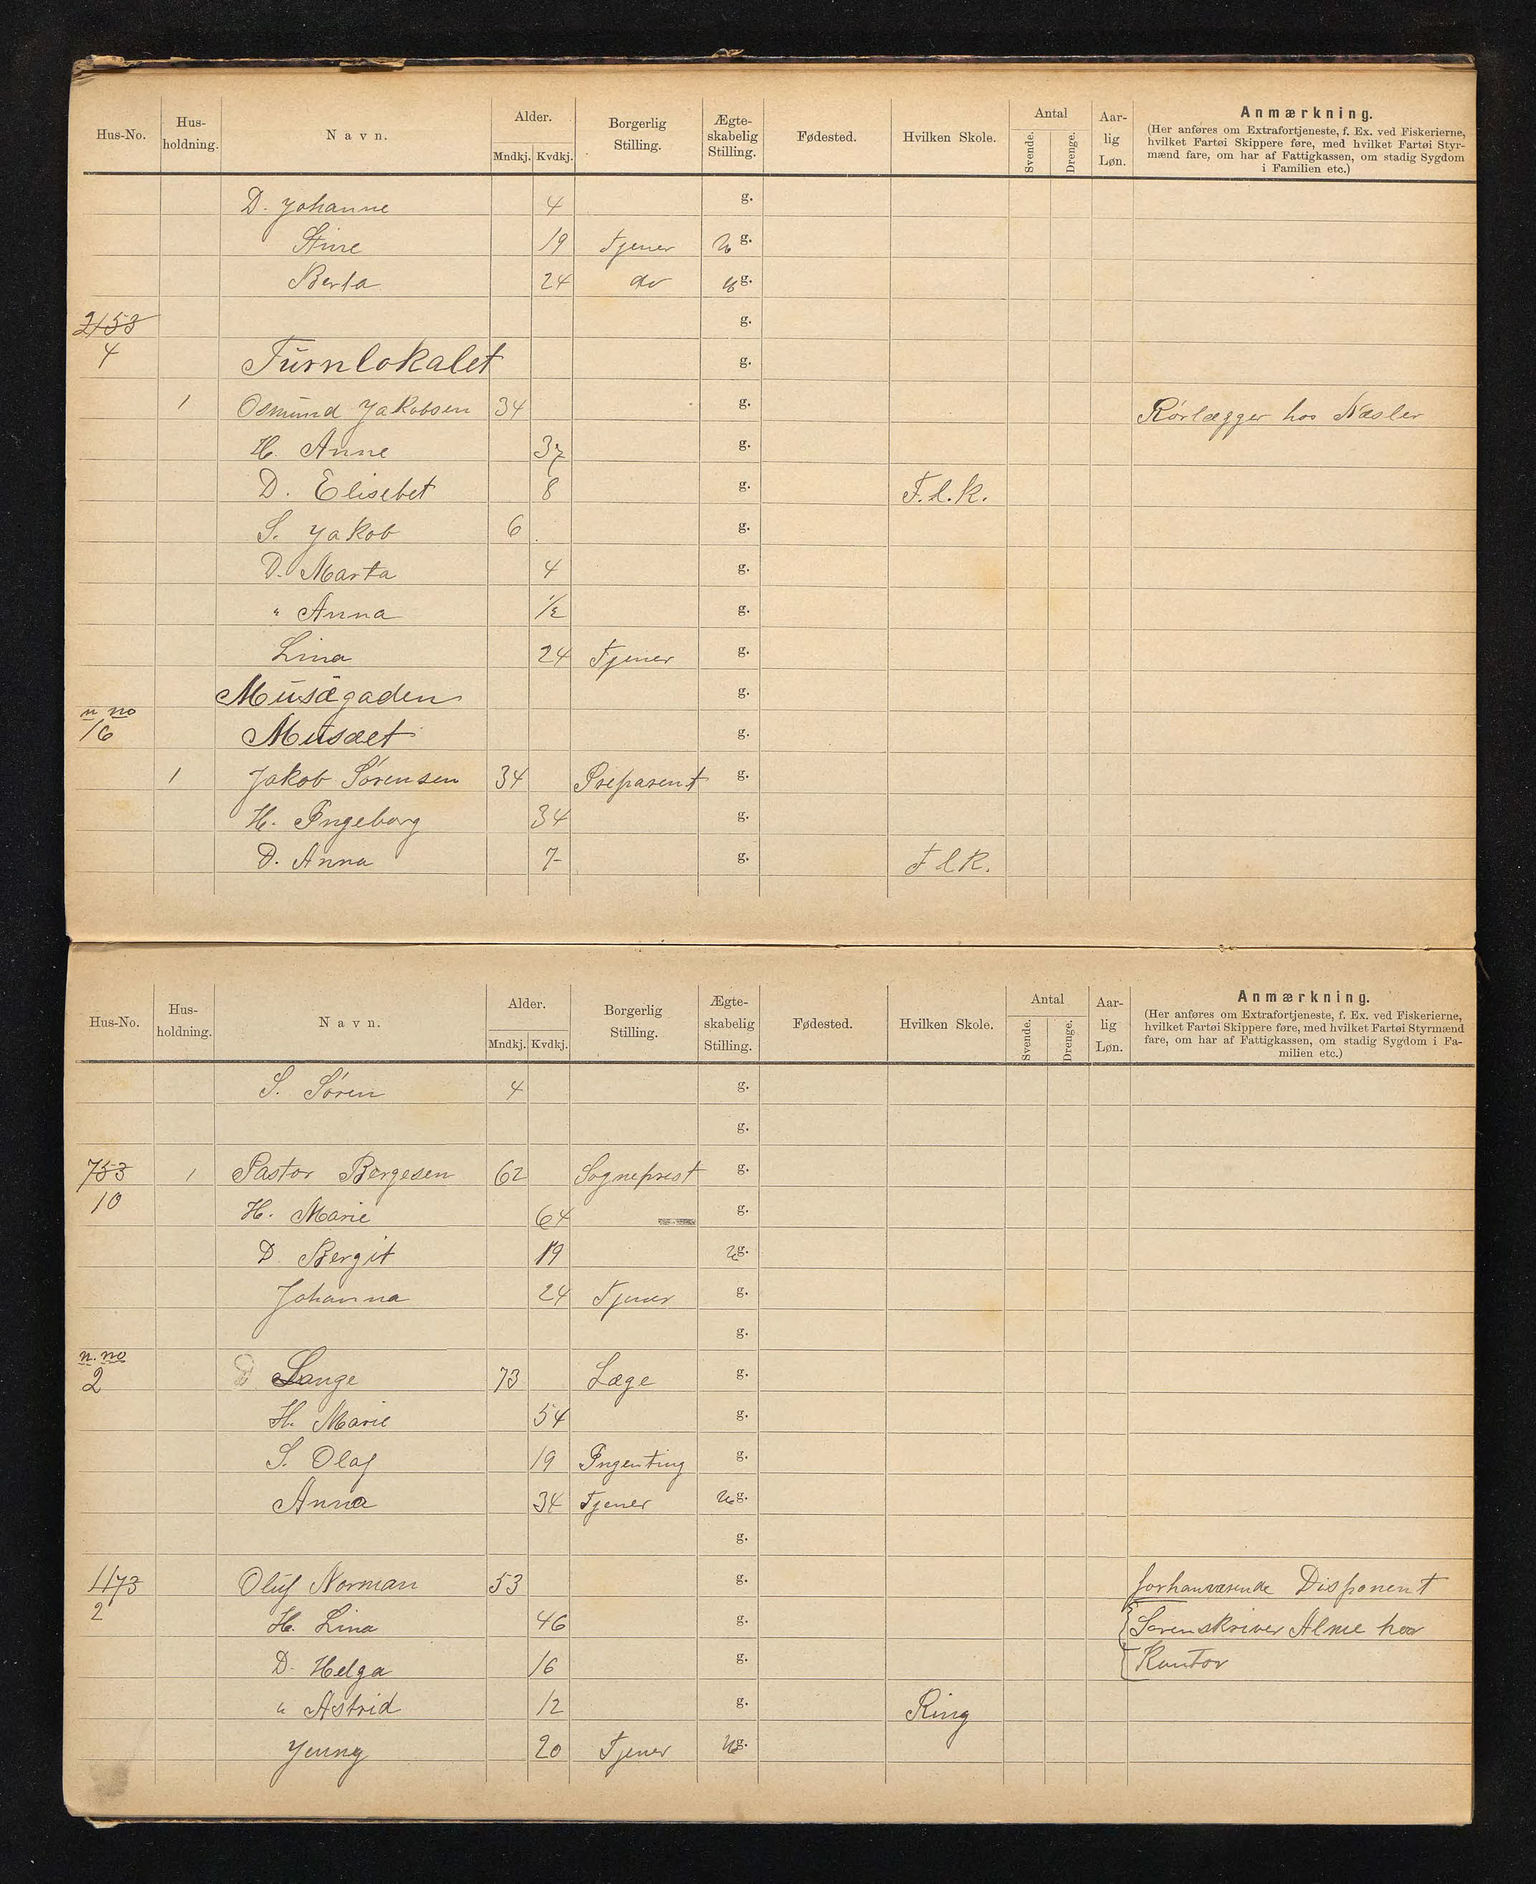 Hus-No. Hus-holdning. Navn. Alder. Mndkj. Kvdkj. Borgerlig Stilling. Ægte-skabelig Stilling. Fødested. Hvilken Skole. Antal Svende. Drenge. Aar-lig Løn. Anmærkning.
(Her anføres om Extrafortjeneste, f. Ex. ved Fiskerierne,
hvilket Fartøi Skippere føre, med hvilket Fartøi Styr-
mænd fare, om har af Fattigkassen, om stadig Sygdom
i Familien etc.)
D. Johanne 4 g.
Stine 19 Tjener u g.
Berta 24 do u g.
2153 g.
4 Turnlokalet g.
1 Osmund Jakobsen 34 g. Rørlægger hos Næsler
H. Anne 37 g.
D. Elisebet 8 g. F.l.k.
S. Jakob 6 g.
D. Marta 4 g.
" Anna 1/2 g.
Lina 24 Tjener g.
Musægaden g.
n no
16 Musæet g.
1 Jakob Sørensen 34 Preparent g.
H. Ingeborg 34 g.
D. Anna 7 g. F l k.
Hus-No. Hus-holdning. Navn. Alder. Mndkj. Kvdkj. Borgerlig Stilling. Ægte-skabelig Stilling. Fødested. Hvilken Skole. Antal Svende. Drenge. Aar-lig Løn. Anmærkning.
(Her anføres om Extrafortjeneste, f. Ex. ved Fiskerierne,
hvilket Fartøi Skippere føre, med hvilket Fartøi Styrmænd
fare, om har af Fattigkassen, om stadig Sygdom i Fa-
milien etc.)
S. Søren 4 g.
g.
753 1 Pastor Børgesen 62 Sogneprest g.
10 H. Marie 64 g.
D Bergit 19 u g.
Johanna 24 Tjener g.
g.
n. no
2 Lange 73 Læge g.
H. Marie 54 g.
S. Olaf 19 Ingenting g.
Anna 34 Tjener u g.
g.
1173 Oluf Norman 53 g. forhanværende Disponent
2 H. Lina 46 g. Sorenskriver Alme har
D. Helga 16 g. Kontor
" Astrid 12 g. Ring
Jenny 20 Tjener u g.